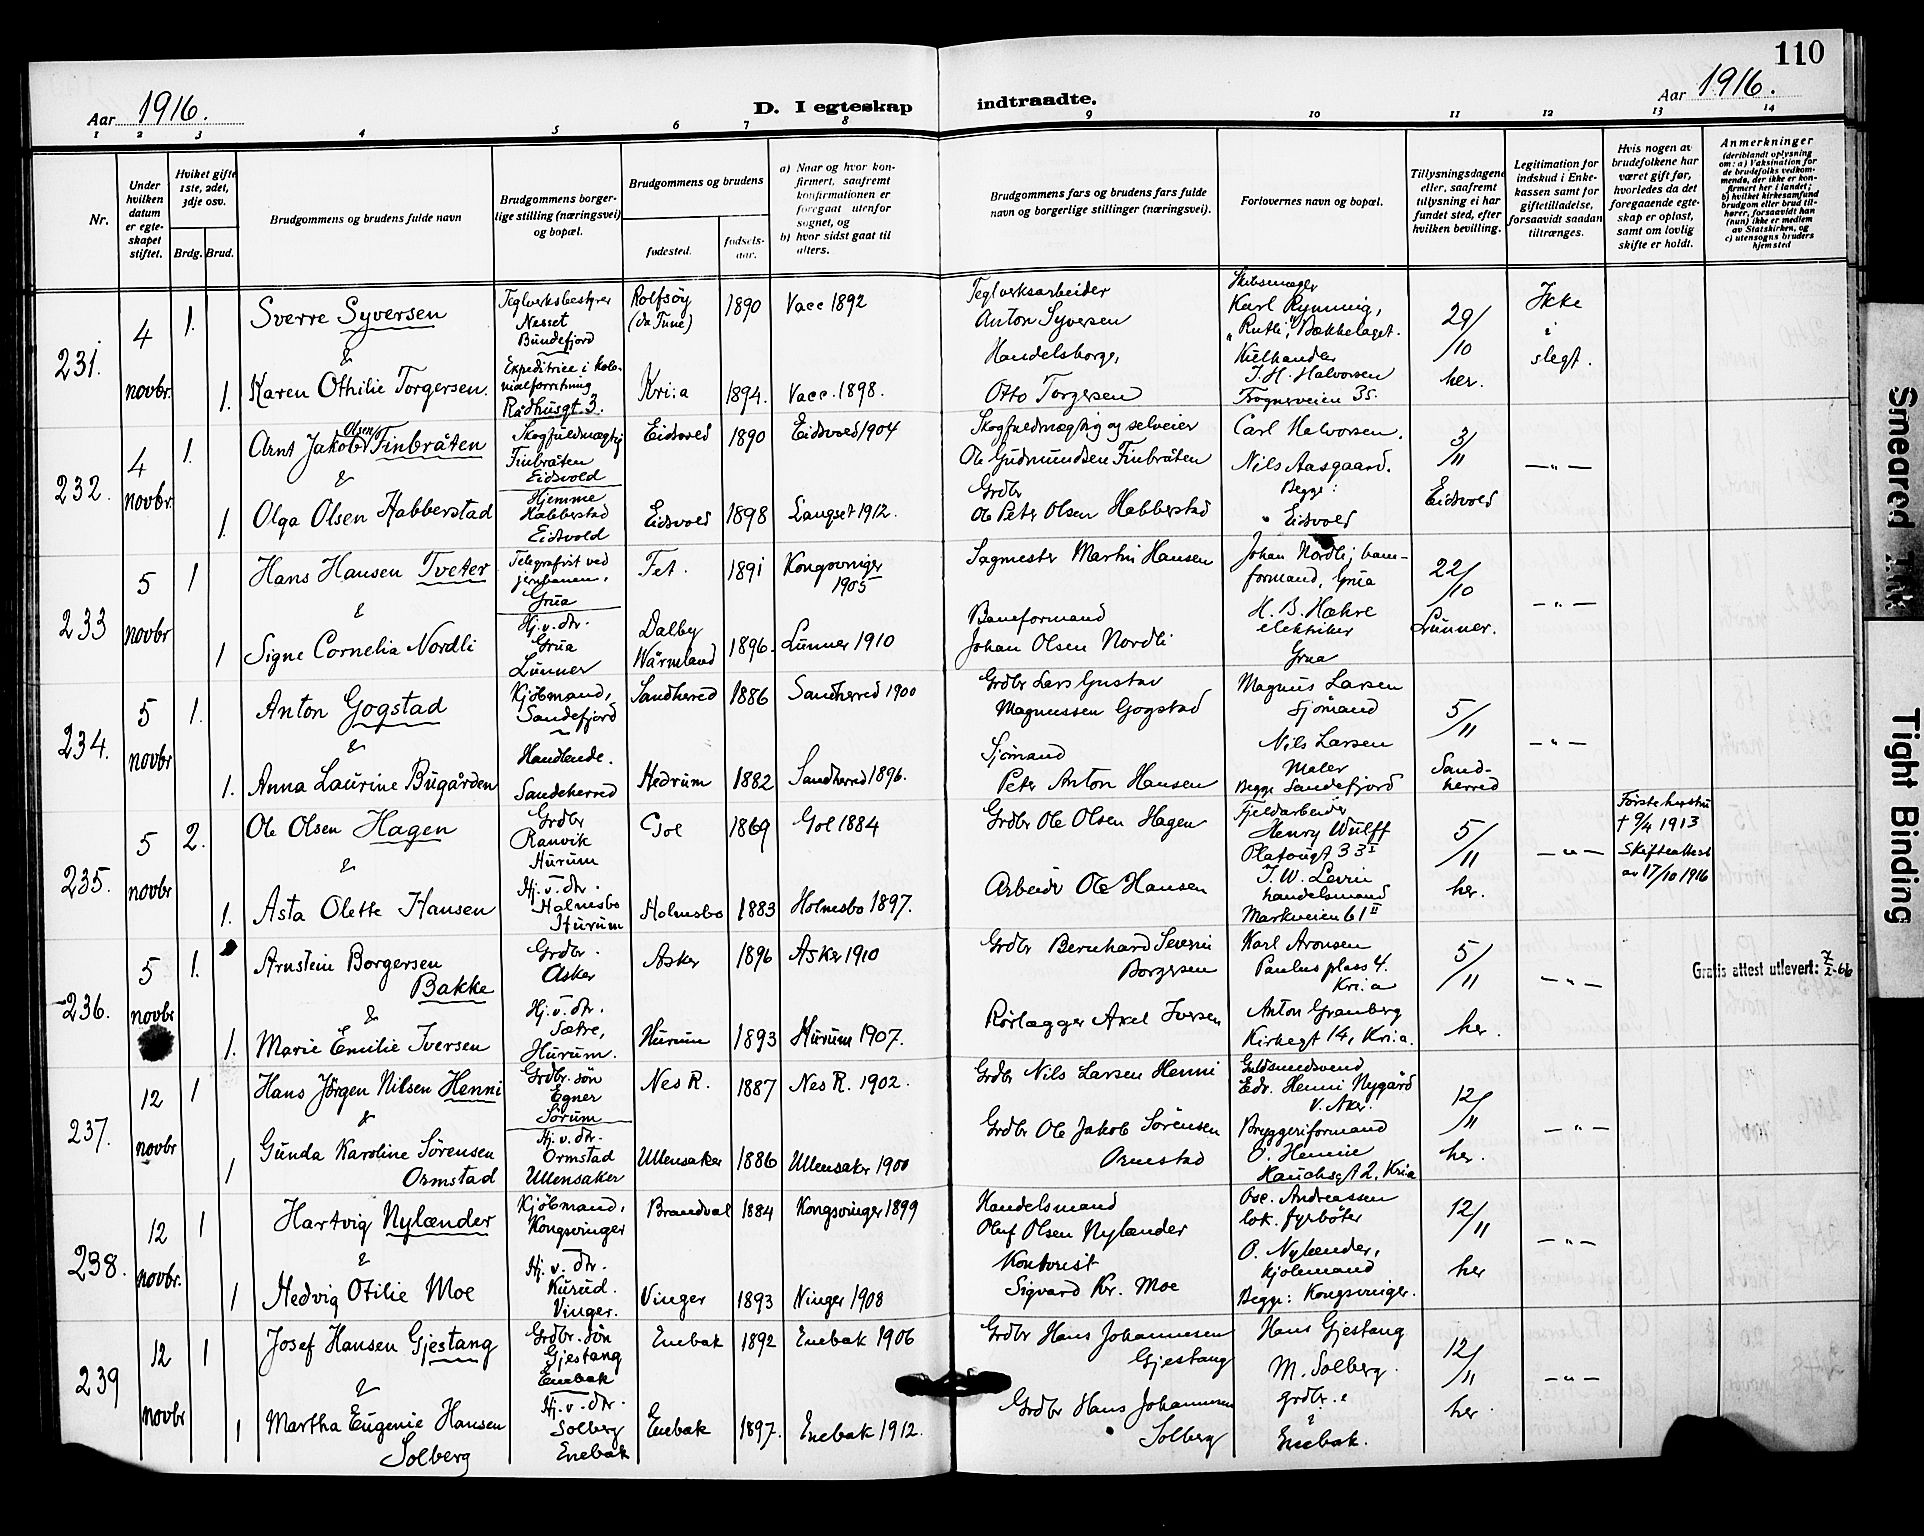 110
Aar 1916.
D. I egteskap indtraadte.
Aar 1916.
1 2 3 4 5 6 7 8 9 10 11 12 13 14
Nr.
Under hvilken datum er egteskapet stiftet.
Hvilket gifte 1ste, 2det, 3dje osv.
Brdg. Brud.
Brudgommens og brudens fulde navn
Brudgommens borgerlige stilling (næringsvei) og bopæl.
Brudgommens og brudens
fødested.
fødselsaar.
a) Naar og hvor konfirmert, saafremt konfirmationen er foregaat utenfor sognet, og
b) hvor sidst gaat til alters.
Brudgommens fars og brudens fars fulde navn og borgerlige stillinger (næringsvei).
Forlovernes navn og bopæl.
Tillysningsdagene eller, saafremt tillysning ei har fundet sted, efter hvilken bevilling.
Legitimation for indskud i Enkekassen samt for giftetilladelse, forsaavidt saadan tiltrænges.
Hvis nogen av brudefolkene har været gift før, hvorledes da det foregaaende egteskap er opløst, samt om lovlig skifte er holdt.
Anmerkninger
(deriblandt oplysning om: a) Vaksination for de brudefolks vedkommende, der ikke er konfirmert her i landet; b) hvilket kirkesamfund brudgom eller brud tilhører, forsaavidt han (hun) ikke er medlem av Statskirken, og c) utensogns bruders hjemsted
231. 4 novbr. 1. Sverre Syversen
Teglverksbestyrer Nesset Bundefjord
Rolfsøy (da Tune) 1890 Vacc 1892
Teglverksarbeider Anton Syversen
Karl Rynning, "Rutli", Bækkelaget.
29/10 her.
Ikke i slegt.
&
1. Karen Othilie Torgersen.
Expeditrice i kolonialforretning Rådhusgt. 3.
Kri:a 1894. Vacc. 1898.
Handelsborger Otto Torgersen
J. H. Halvorsen Frognerveien 35.
232. 4 novbr. 1. Arnt Jakob Olsen Finbråten
Skogfuldmægtig Finbråten Eidsvold
Eidsvold 1890 Eidsvold 1904
Skogfuldmægtig og selveier
Ole Gudmundsen Finbråten
Carl Halvorsen.
Nils Aasgaard.
Begge: Eidsvold
3/11 Eidsvold
— " —
&
1. Olga Olsen Habberstad
Hjemme Habberstad Eidsvold
Eidsvold 1898 Langset 1912.
Grdbr Ole Peter Olsen Habberstad
233 5 novbr 1 Hans Hansen Tveter
Telegrafist ved jernbanen, Grua
Fet. 1891 Kongsvinger 1905
Sagmester Martin Hansen
Johan Nordli, baneformand, Grua
22/10 Lunner.
— " —
&
1 Signe Cornelia Nordli
Hj. v. dtr. Grua Lunner
Dalby Wärmland 1896. Lunner 1910
Baneformand Johan Olsen Nordli
H. B. Hæhre elektriker Grua
234. 5 novbr 1. Anton Gogstad
Kjøbmand, Sandefjord
Sandherred 1886 Sandherred 1900
Grdbr Lars Gustav Magnussen Gogstad
Magnus Larsen Sjømand
5/11 Sandherred
— " —
&
1. Anna Laurine Bugården
Handlende. Sandeherred
Hedrum 1882 Sandherred 1896.
Sjømand Peter Anton Hansen
Nils Larsen Maler
Begge Sandefjord
235. 5 novbr 2. Ole Olsen Hagen
Grdbr Ranvik Hurum
Gol 1869 Gol 1884
Grdbr Ole Olsen Hagen
Fjeldarbeider Henry Wulff Platougt 33 I
5/11 her.
— " —
Første hustru † 9/4 1913
Skifteattest av 17/10 1916
&
1. Asta Olette Hansen
Hj. v. dtr. Holmsbo Hurum
Holmsbo 1883 Holmsbo 1897.
Arbeider Ole Hansen
J. W. Levin handelsmand Markveien 61 II
236. 5 novbr 1. Arnstein Borgersen Bakke
Grdbr. Asker
Asker 1896 Asker 1910
Grdbr Bernhard Severin Borgersen
Karl Aronsen Paulus plass 4. Kri:a
5/11 her.
— " —
Gratis attest utlevert: 7/2-66
&
1. Marie Emilie Iversen
Hj. v. dtr. Sætre, Hurum.
Hurum 1893 Hurum 1907.
Rørlægger Axel Iversen
Anton Granberg Kirkegt 14, Kri:a.
237. 12 novbr 1 Hans Jørgen Nilsen Henni
Grdbr. søn Egner Sørum
Nes R. 1887 Nes R. 1902.
Grdbr Nils Larsen Henni
Guldsmedsvend Edv. Henni Nygård V. Aker.
12/11 her.
— " —
&
1 Gunda Karoline Sørensen Ormstad
Hj. v. dtr. Ormstad Ullensaker
Ullensaker 1886 Ullensaker 1900
Grdbr Ole Jakob Sørensen Ormstad
Bryggeriformand O. Hennie Hauchsgt 2, Kria
238. 12 novbr. 1 Hartvig Nylænder
Kjøbmand, Kongsvinger
Brandval 1884 Kongsvinger 1899
Handelsmand Oluf Olsen Nylænder
Osc. Andreassen lok. fyrbøter
12/11 her
— " —
&
1 Hedvig Otilie Moe
Hj. v. dtr. Kurud. Vinger.
Vinger 1893 Vinger 1908
Kontorist Sigvard Kr. Moe
O. Nylænder, kjølemand
Begge: Kongsvinger.
239 12 novbr 1 Josef Hansen Gjestang
Grdbr. søn Gjestang Enebak
Enebak 1892 Enebak 1906
Grdbr Hans Johannesen Gjestang
Hans Gjestang
12/11 her.
— " —
&
1 Martha Eugenie Hansen Solberg
Hj. v. dtr. Solberg Enebak
Enebak 1897. Enebak 1912.
Grdbr Hans Johannesen Solberg
M. Solberg. grdbr.e i Enebak.
Smeared Ink
Tight Binding